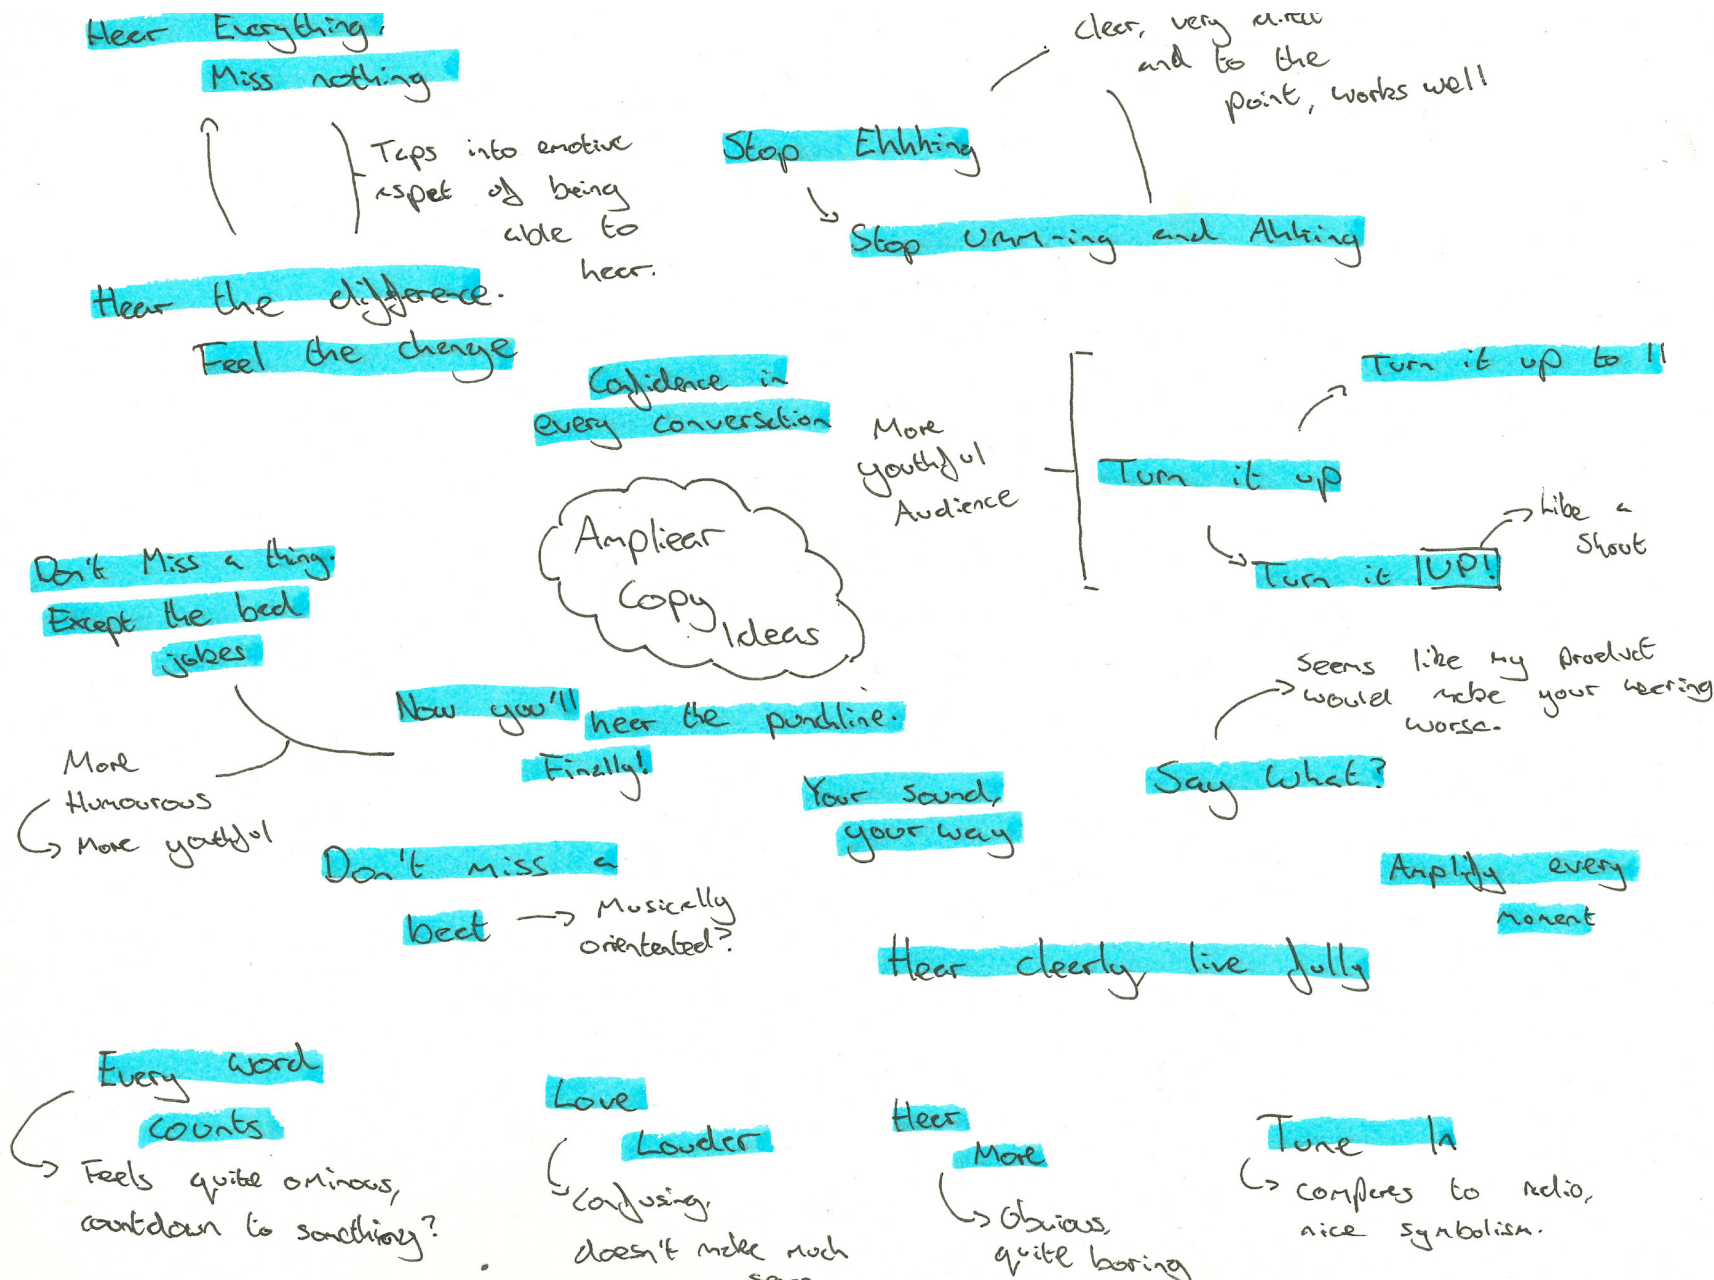 Hear Everything.
Miss nothing
Taps into emotive
aspet of being
able to
hear.
Hear the difference.
Feel the change
clear, very
and to the
point, works well
Stop Ehhhing
Stop Umm-ing and Ahhing
Confidence in
every conversation
More
youthful
Audience
Turn it up to 11
Turn it up
Turn it UP!
Like a
Shout
Ampliear
Copy
Ideas
Don't Miss a thing.
Except the bad
jokes
More
Humourous
More youthful
Now you'll hear the punchline.
Finally!
Seems like my product
would make your hearing
worse.
Say What?
Your sound,
your way
Don't miss a
beat
Musically
orientated?
Amplify every
moment
Hear clearly, live fully
Every word
counts
Feels quite ominous,
countdown to something?
Love
Louder
Confusing,
doesn't make much
Hear
More
Obvious,
quite boring
Tune In
compares to radio,
nice symbolism.